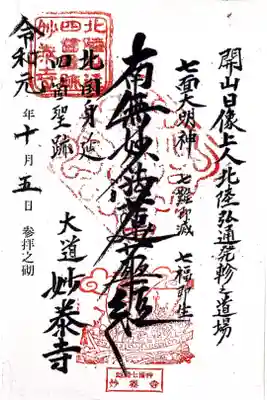 開山日像上人北陸弘通発軫之道場
七面大明神
七難即滅 七福即生
南無妙法蓮華経
北国身延
四箇聖跡
大道 妙泰寺
令和元年十月五日 参拝之砌